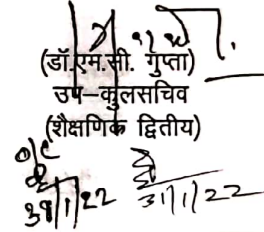 (डॉ.एम.सी. गुप्ता)
उप-कुलसचिव
(शैक्षणिक द्वितीय)
o/c
31/1/22 31/1/22